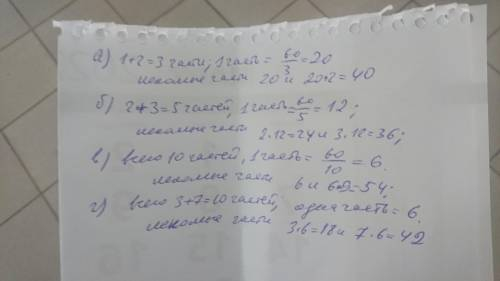 а) 1+2=3 части; 1 часть = 60/3 = 20
искомые части 20 и 20·2=40
б) 2+3=5 частей, 1 часть = 60/5 = 12;
искомые части 2·12=24 и 3·12=36;
в) всего 10 частей, 1 часть = 60/10 = 6.
искомые части 6 и 6·9=54;
г) всего 3+7=10 частей, одна часть = 6.
искомые части 3·6=18 и 7·6=42